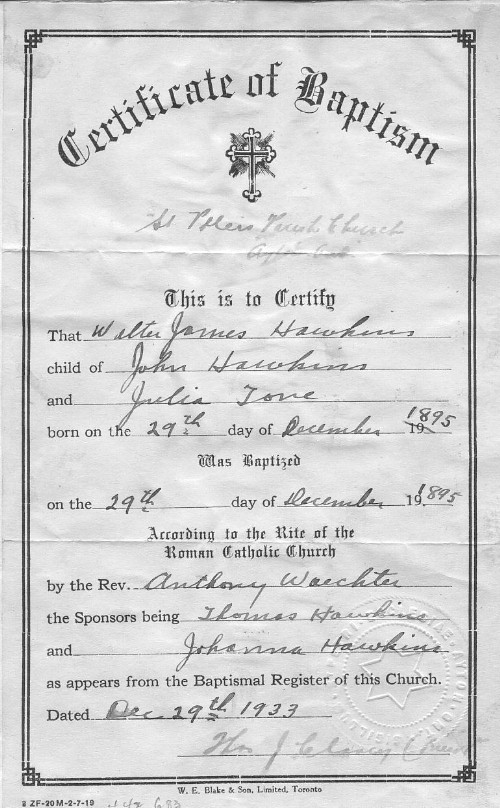 Certificate of Baptism
St Peters Parish Church
This is to Certify
That Walter James Hawkins
child of John Hawkins
and Julia Tone
born on the 29th day of December 19 1895
Was Baptized
on the 29th day of December 19 1895
According to the Rite of the
Roman Catholic Church
by the Rev. Anthony Waechter
the Sponsors being Thomas Hawkins
and Johanna Hawkins
as appears from the Baptismal Register of this Church.
Dated Dec 29th 1933
Thos J
W. E. Blake & Son, Limited, Toronto
8 ZF-20M-2-7-19